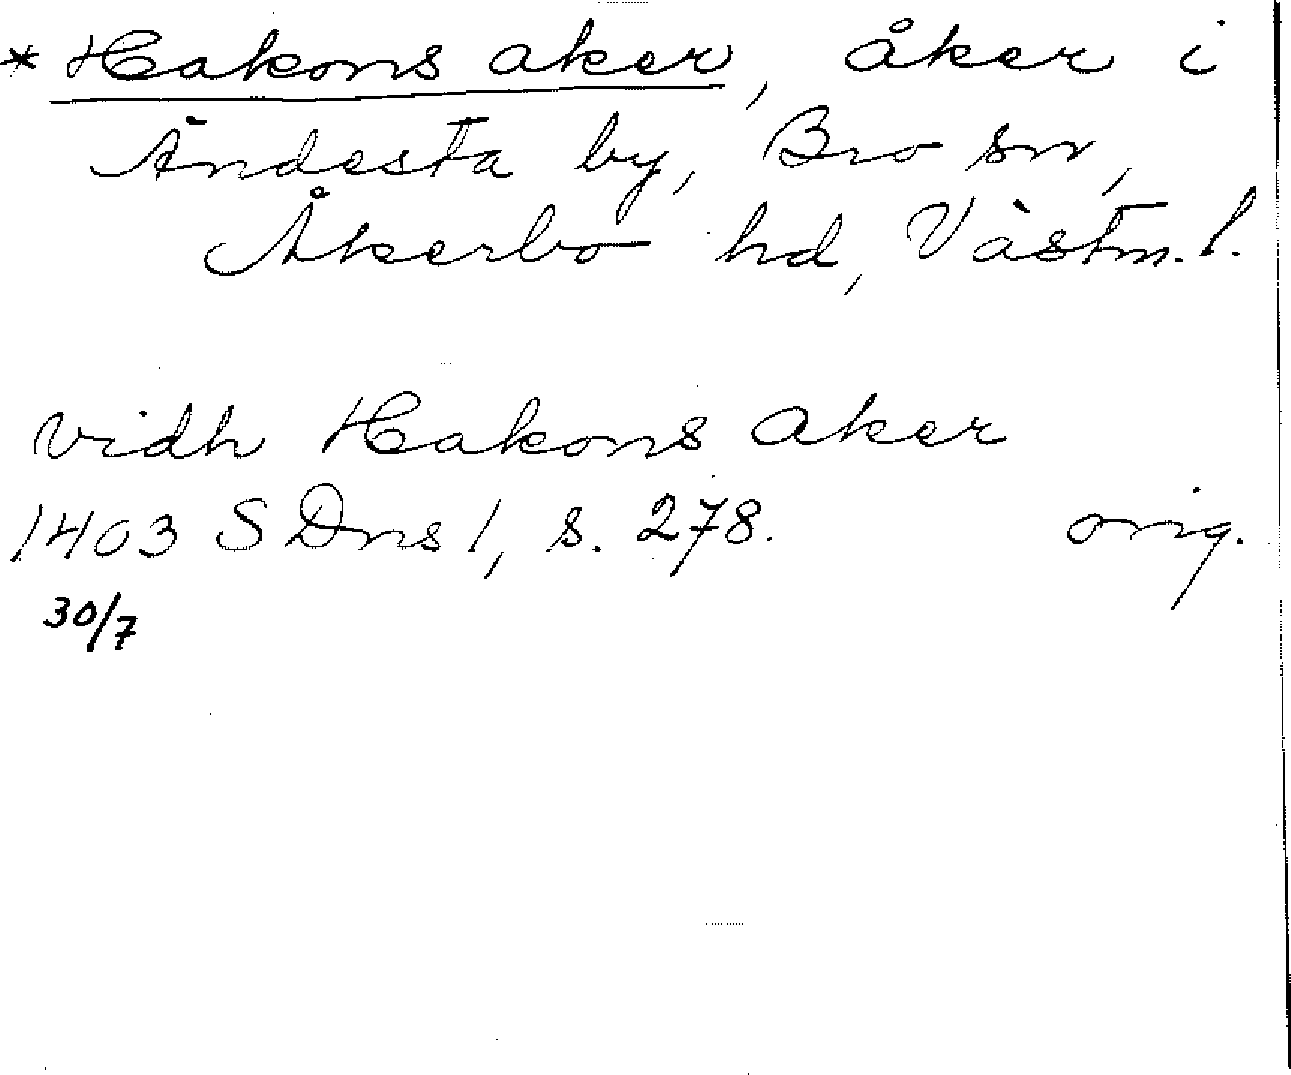 * Hakons aker, åker i
Ändesta by, Bro sn,
Åkerbo hd, Västm. l.
vidh Hakons aker
1403 SDns 1, s. 278. orig.
30/7